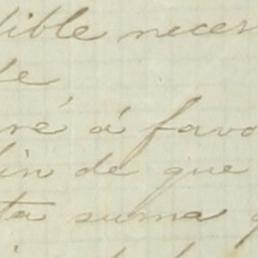 dible neces
le,
ré á favo
fin de que
ta suma q